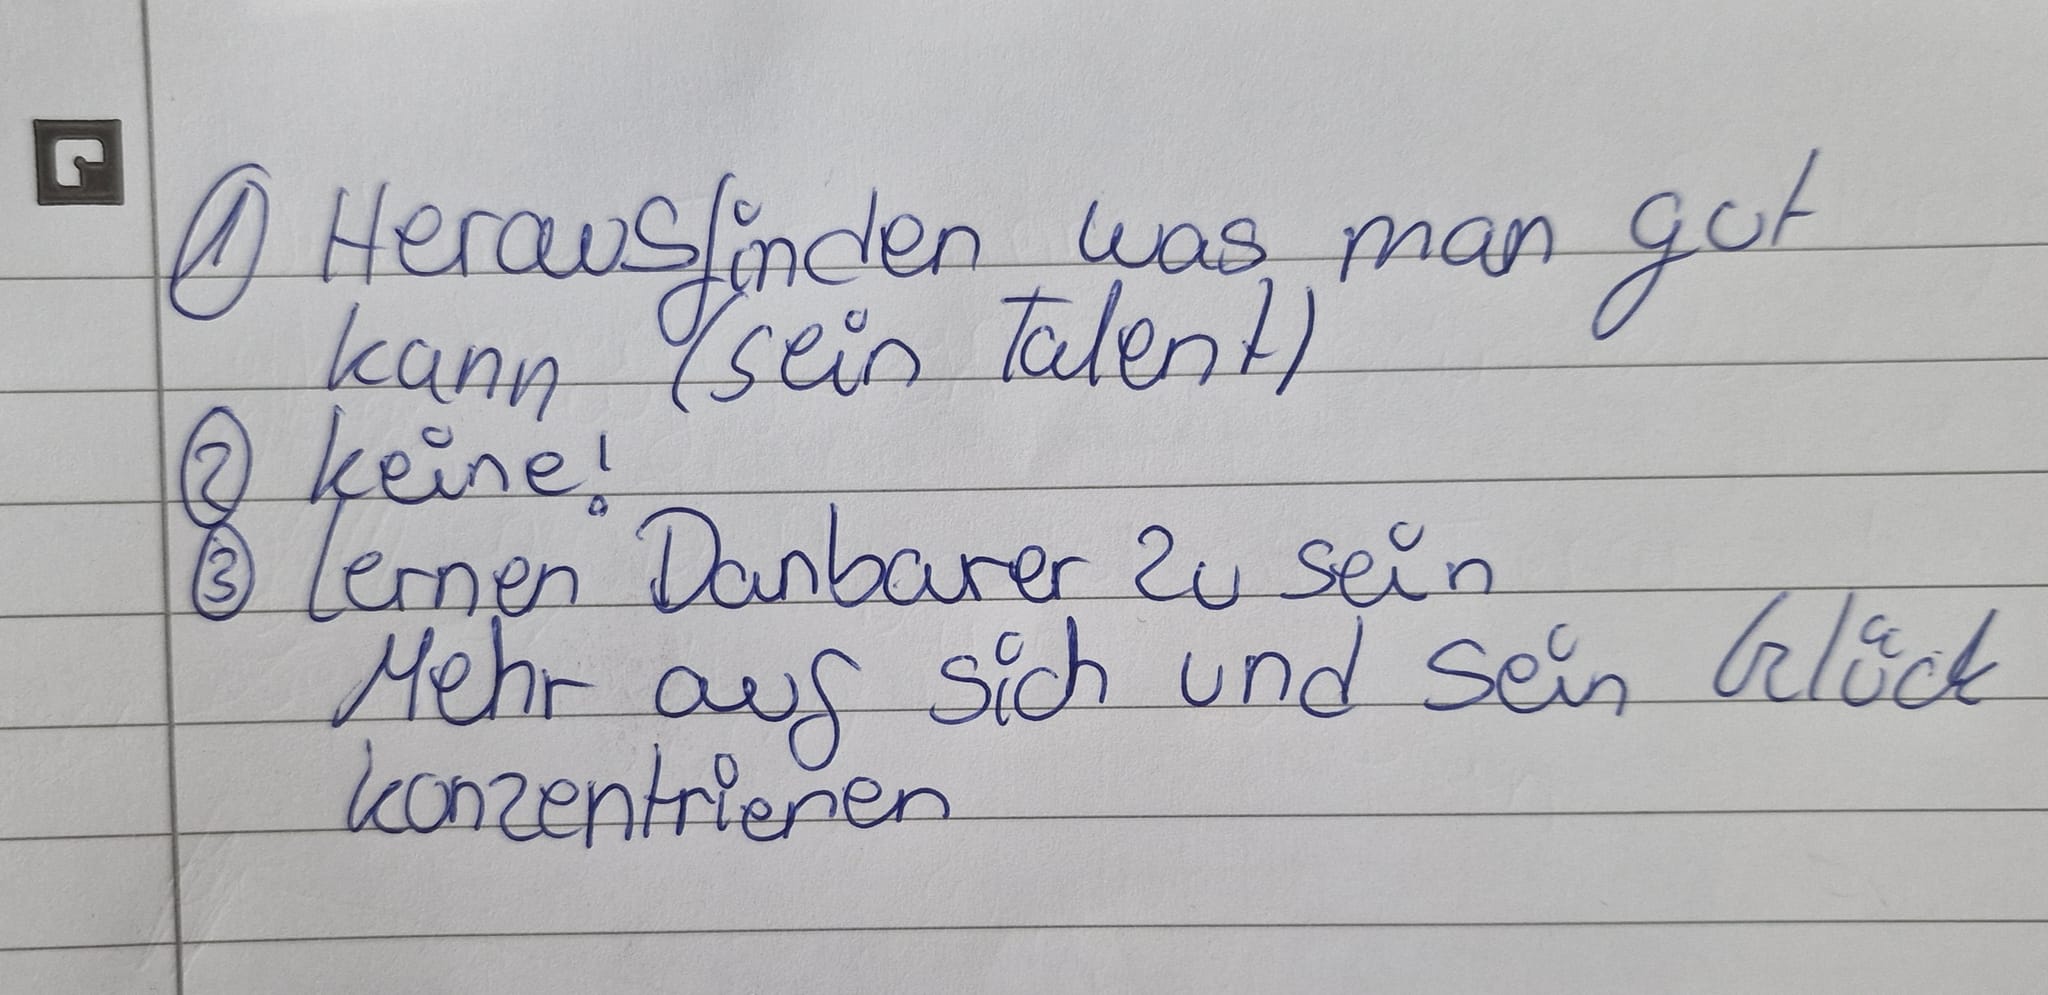 ① Herausfinden was man gut
kann (sein Talent)
② keine!
③ lernen Danbarer zu sein
Mehr auf sich und sein Glück
konzentrieren